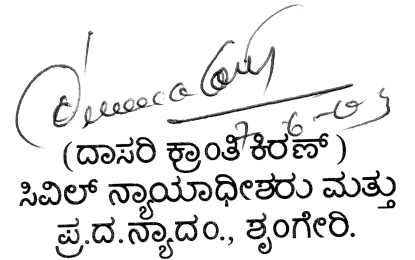 7-6-03
(ದಾಸರಿ ಕ್ರಾಂತಿ ಕಿರಣ್)
ಸಿವಿಲ್ ನ್ಯಾಯಾಧೀಶರು ಮತ್ತು
ಪ್ರ.ದ.ನ್ಯಾದಂ., ಶೃಂಗೇರಿ.